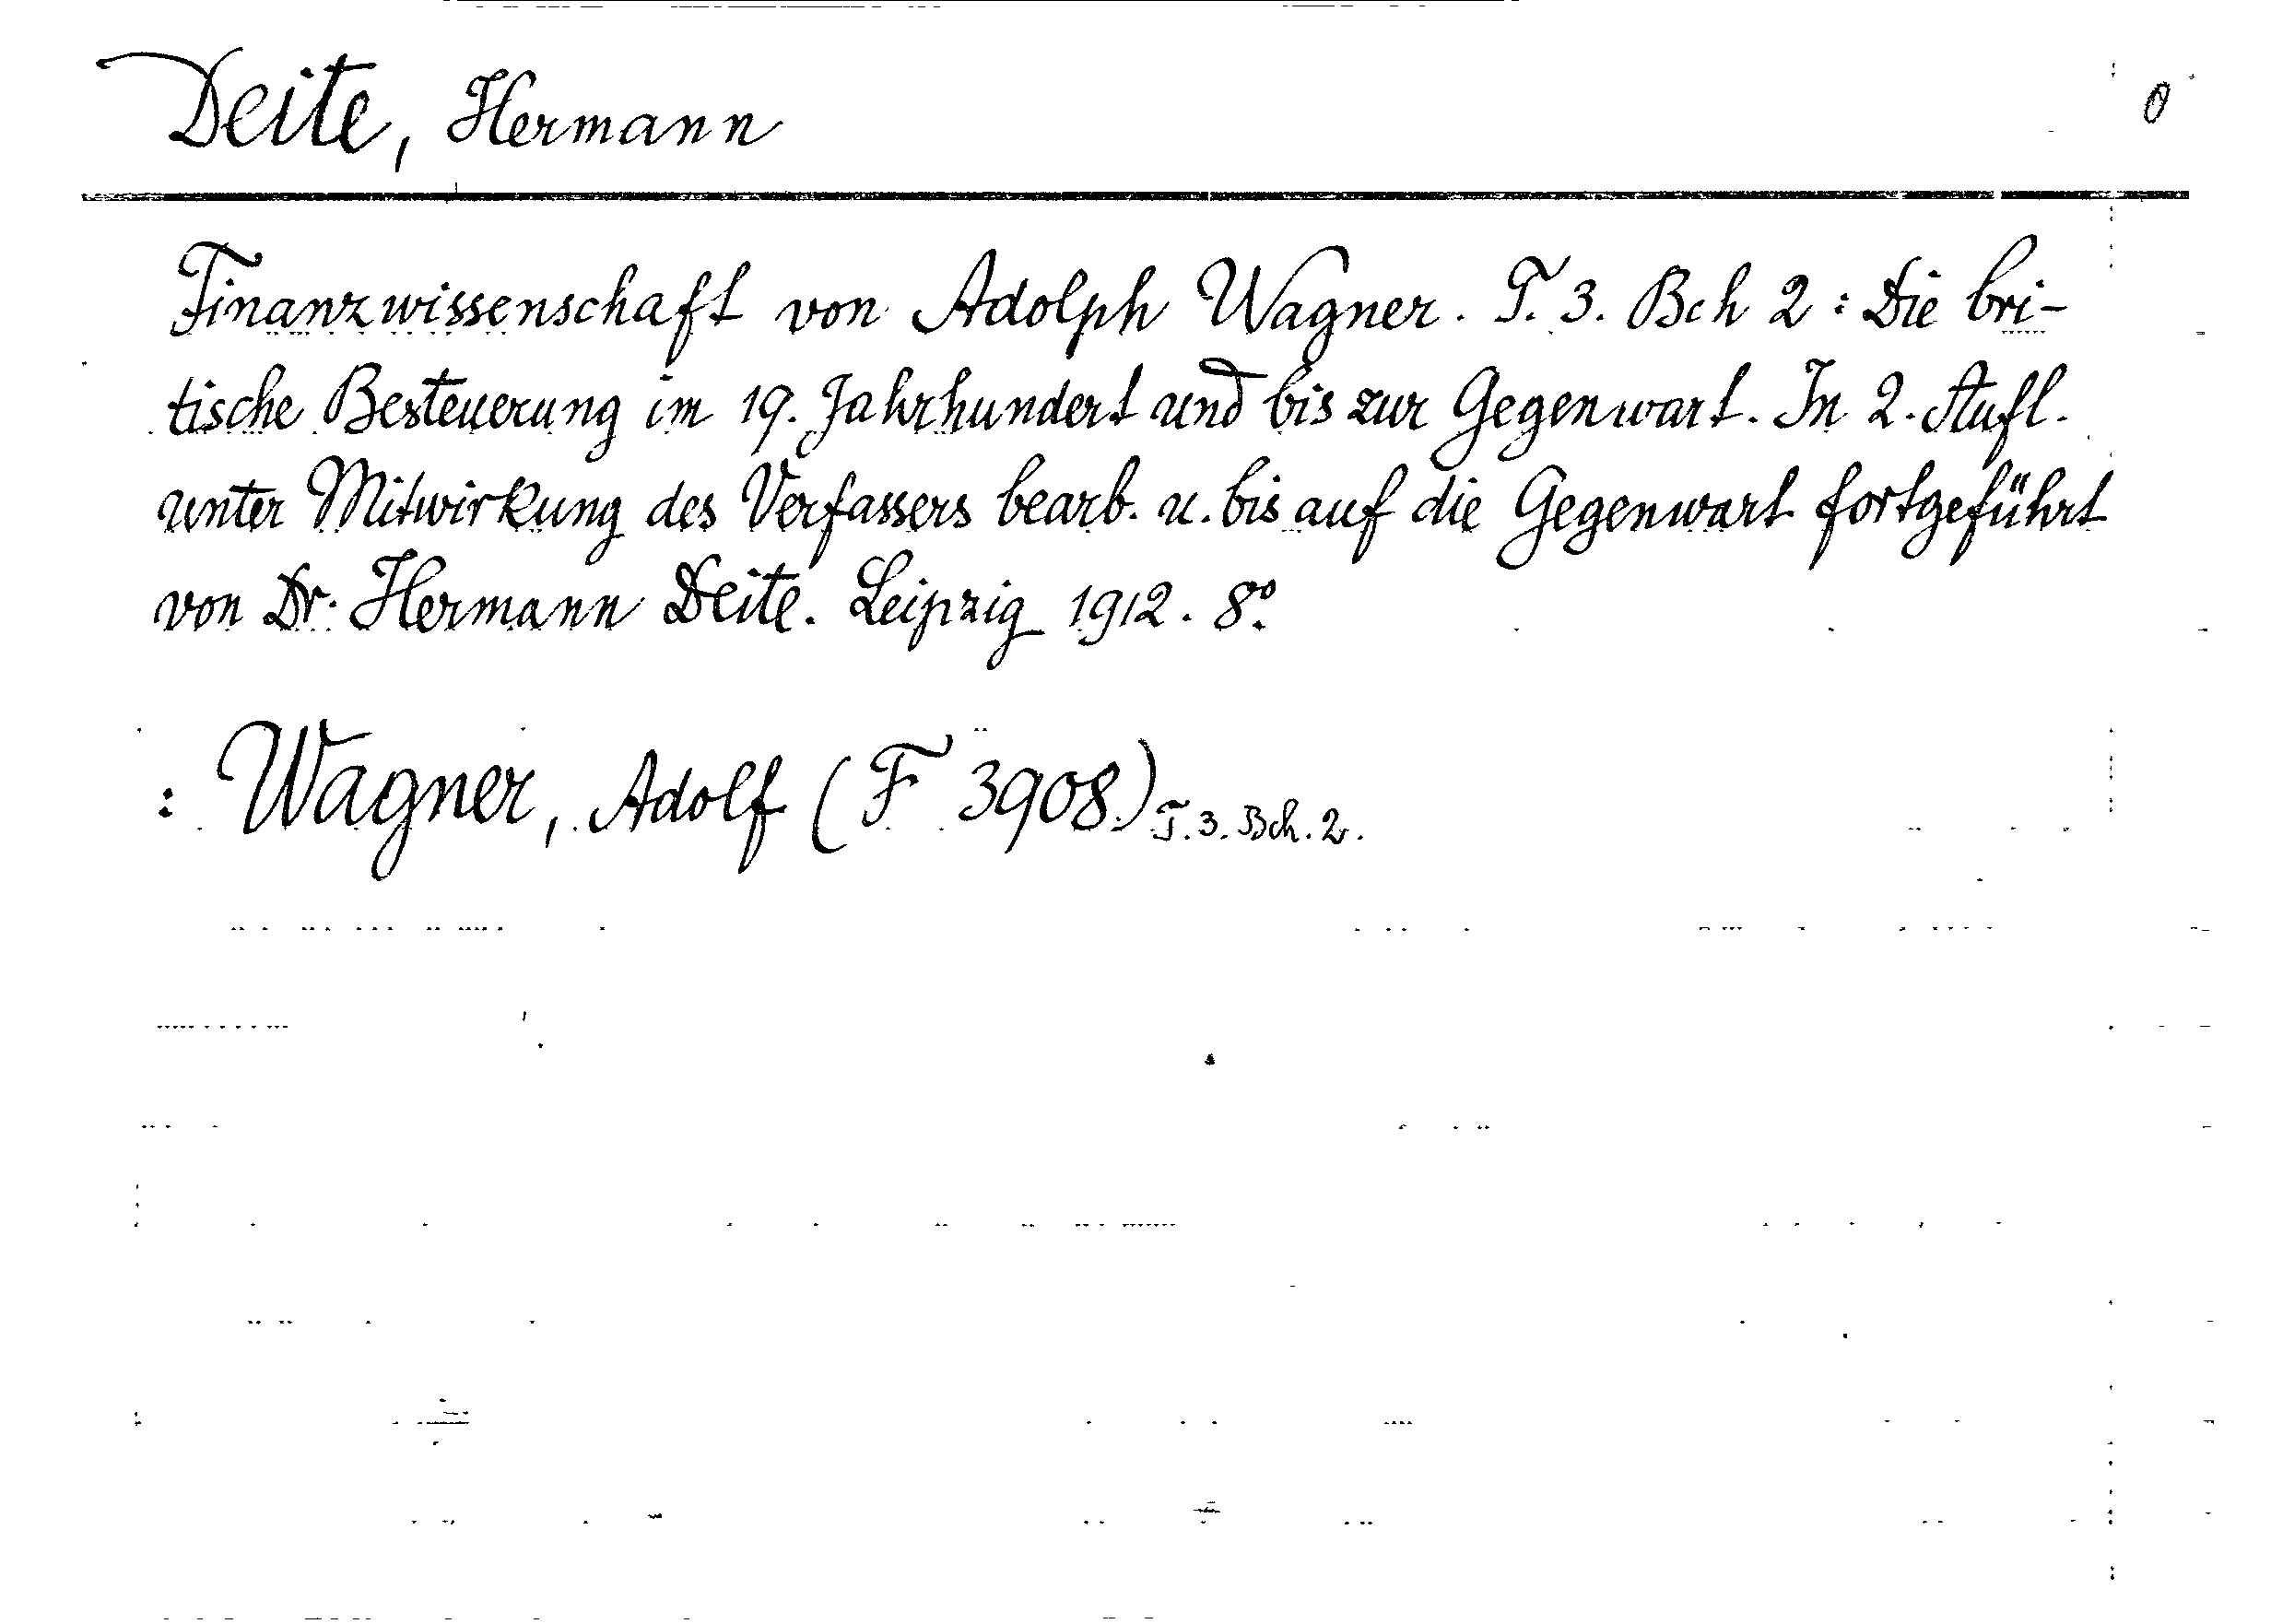 Deite, Hermann
0
Finanzwissenschaft von Adolph Wagner. T. 3. Bch 2 : Die bri-
tische Besteuerung im 19. Jahrhundert und bis zur Gegenwart. In 2. Aufl.
unter Mitwirkung des Verfassers bearb. u. bis auf die Gegenwart fortgeführt
von Dr. Hermann Deite. Leipzig 1912. 8º.
: Wagner, Adolf (F 3908) T. 3. Bch. 2.